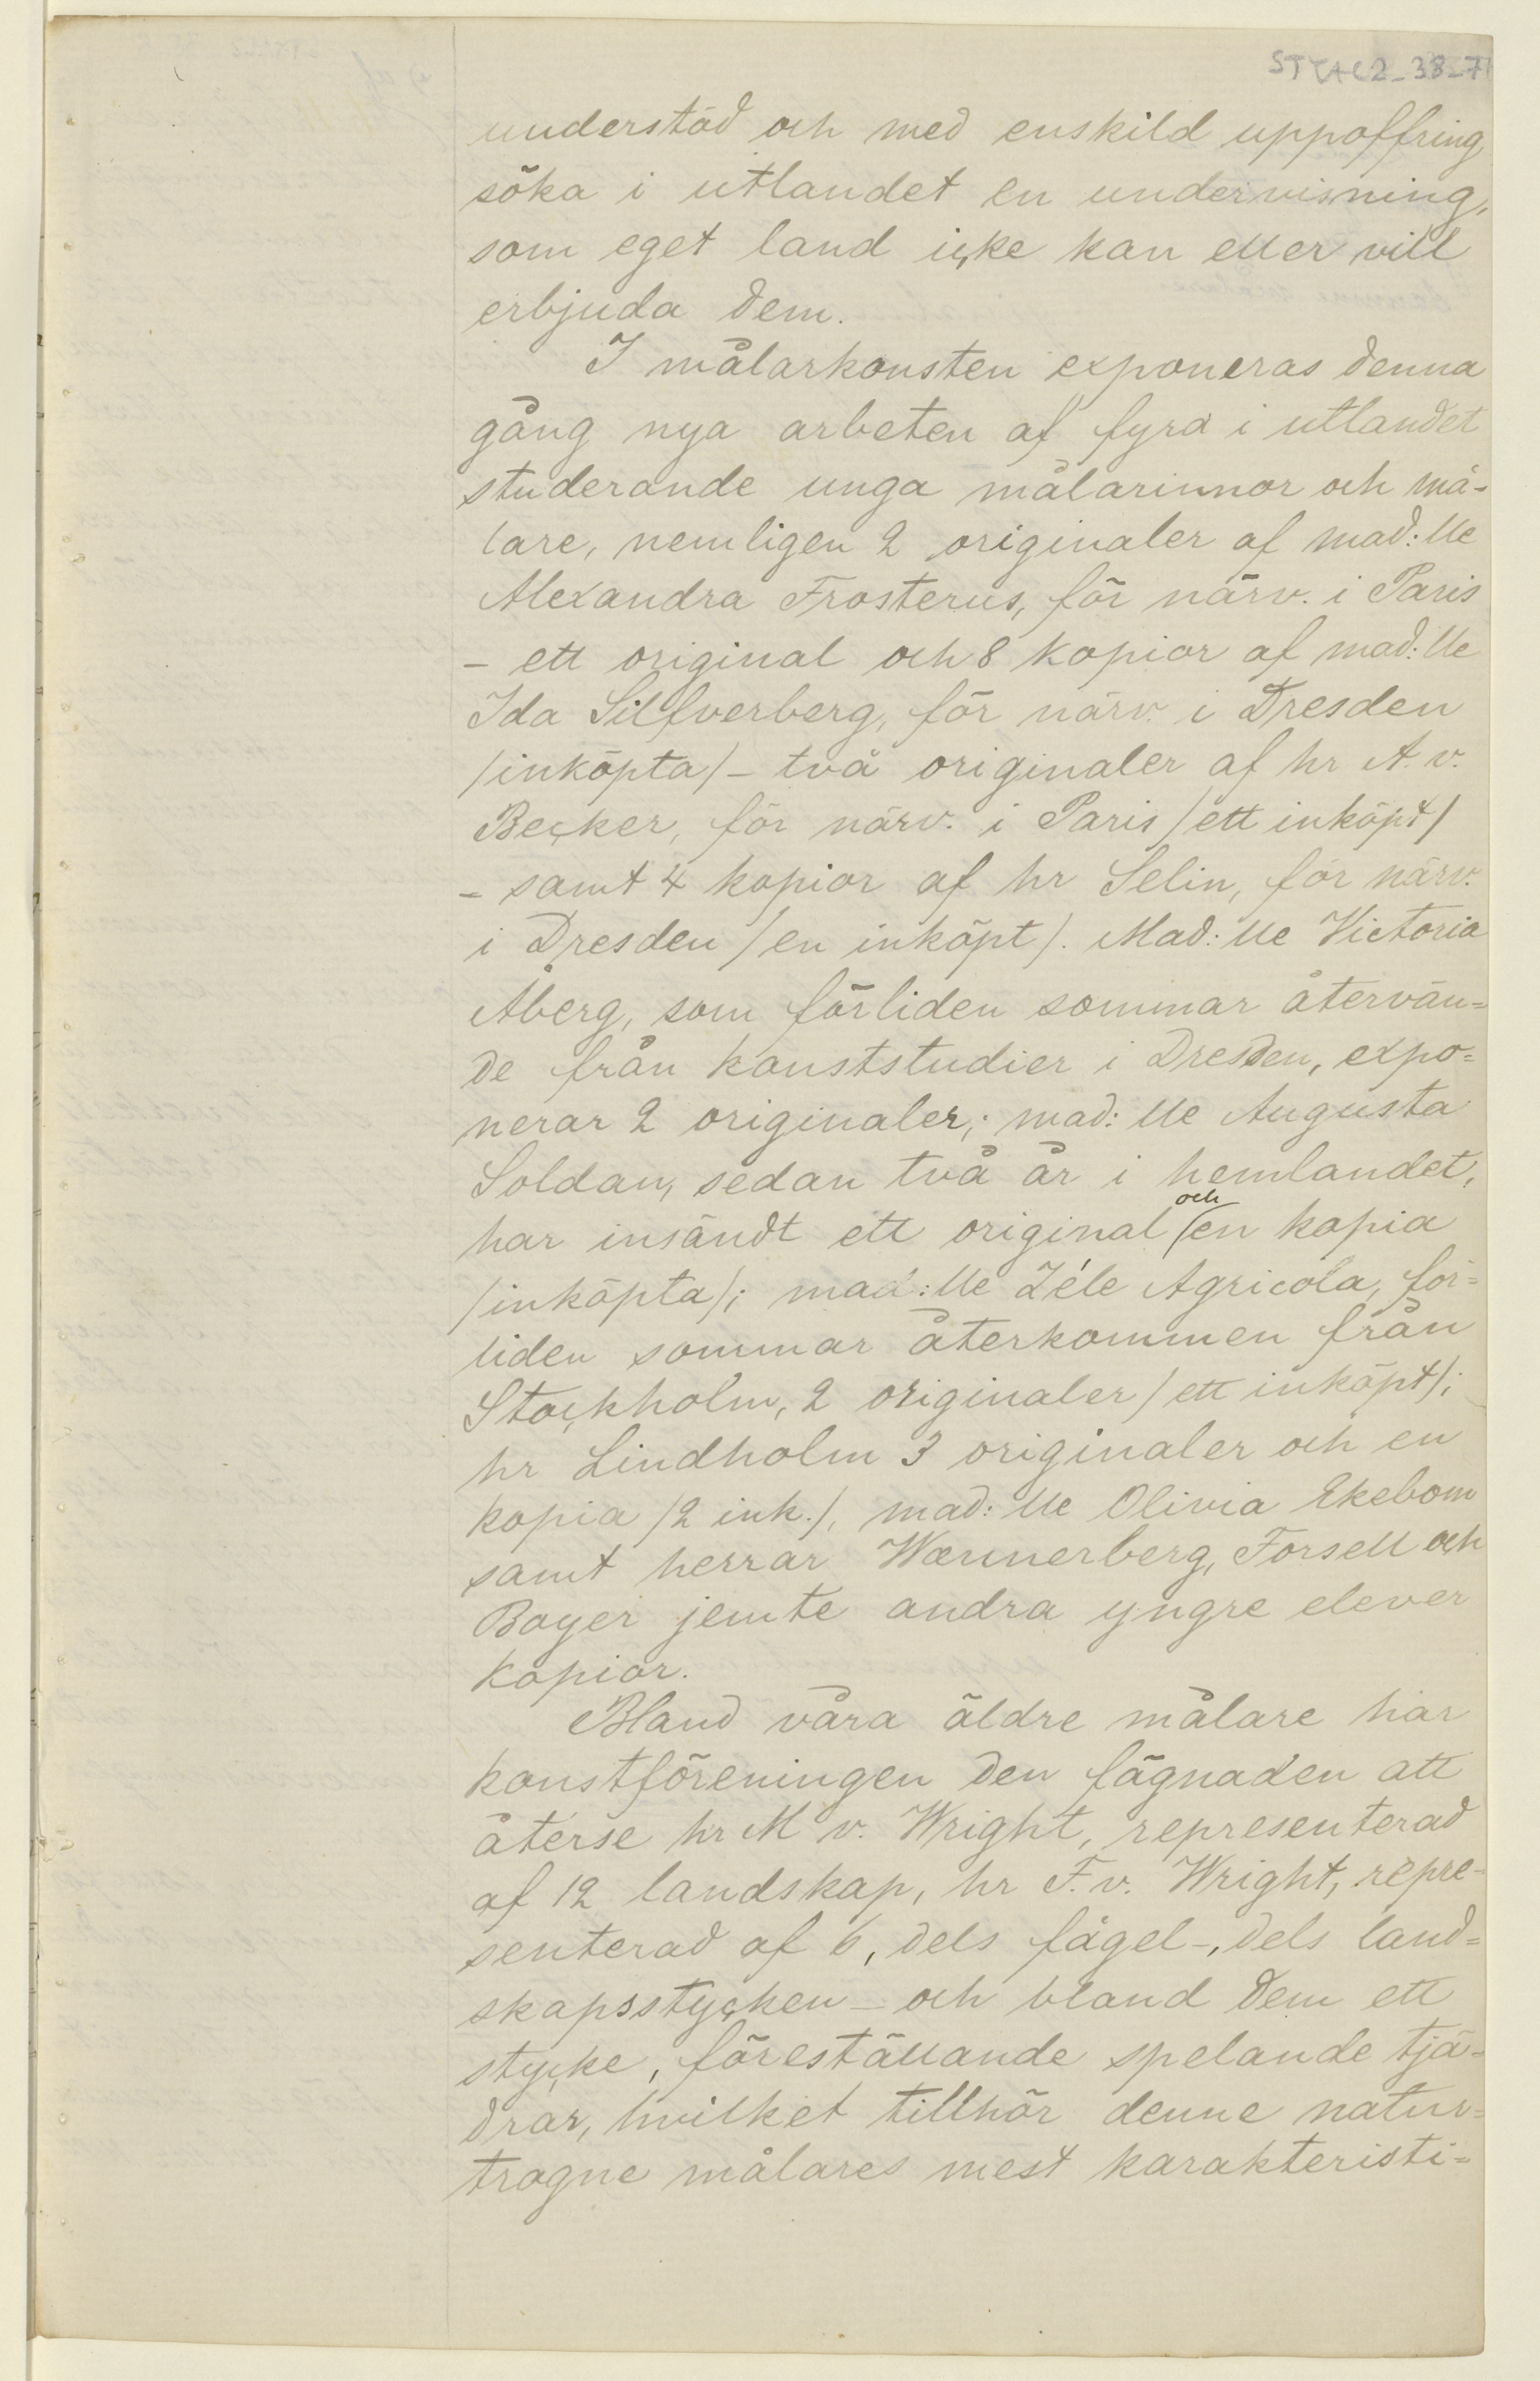 understöd och med enskild uppoffring,
söka i utlandet en undervisning,
som eget land icke kan eller vill
erbjuda dem.
I målarkonsten exponeras denna
gång nya arbeten af fyra i utlandet
studerande unga målarinnor och må-
lare, nemligen 2 originaler af mad:lle
Alexandra Frosterus, för närv. i Paris
– ett original och 8 kopior af mad:lle
Ida Silfverberg, för närv. i Dresden
/inköpta/ – två originaler af hr A. v.
Becker, för närv. i Paris /ett inköpt/
– samt 4 kopior af hr Selin, för närv.
i Dresden /en inköpt/. Mad:lle Victoria
Åberg, som förliden sommar återvän=
de från konststudier i Dresden, expo=
nerar 2 originaler; mad:lle Augusta
Soldan, sedan två år i hemlandet,
har insändt ett original och en kopia
/inköpta/; mad:lle Zéle Agricola, för=
liden sommar återkommen från
Stockholm, 2 originaler /ett inköpt/;
hr Lindholm 3 originaler och en
kopia /2 ink./, mad:lle Olivia Ekebom
samt herrar Wænnerberg, Forsell och
Boyer jemte andra yngre elever
kopior.
Bland våra äldre målare har
konstföreningen den fägnaden att
återse hr M v. Wright, representerad
af 12 landskap, hr F. v. Wright, repre-
senterad af 6, dels fågel-, dels land=
skapsstycken – och bland dem ett
stycke, föreställande spelande tjä=
drar, hvilket tillhör denne natur=
trogne målares mest karakteristi=